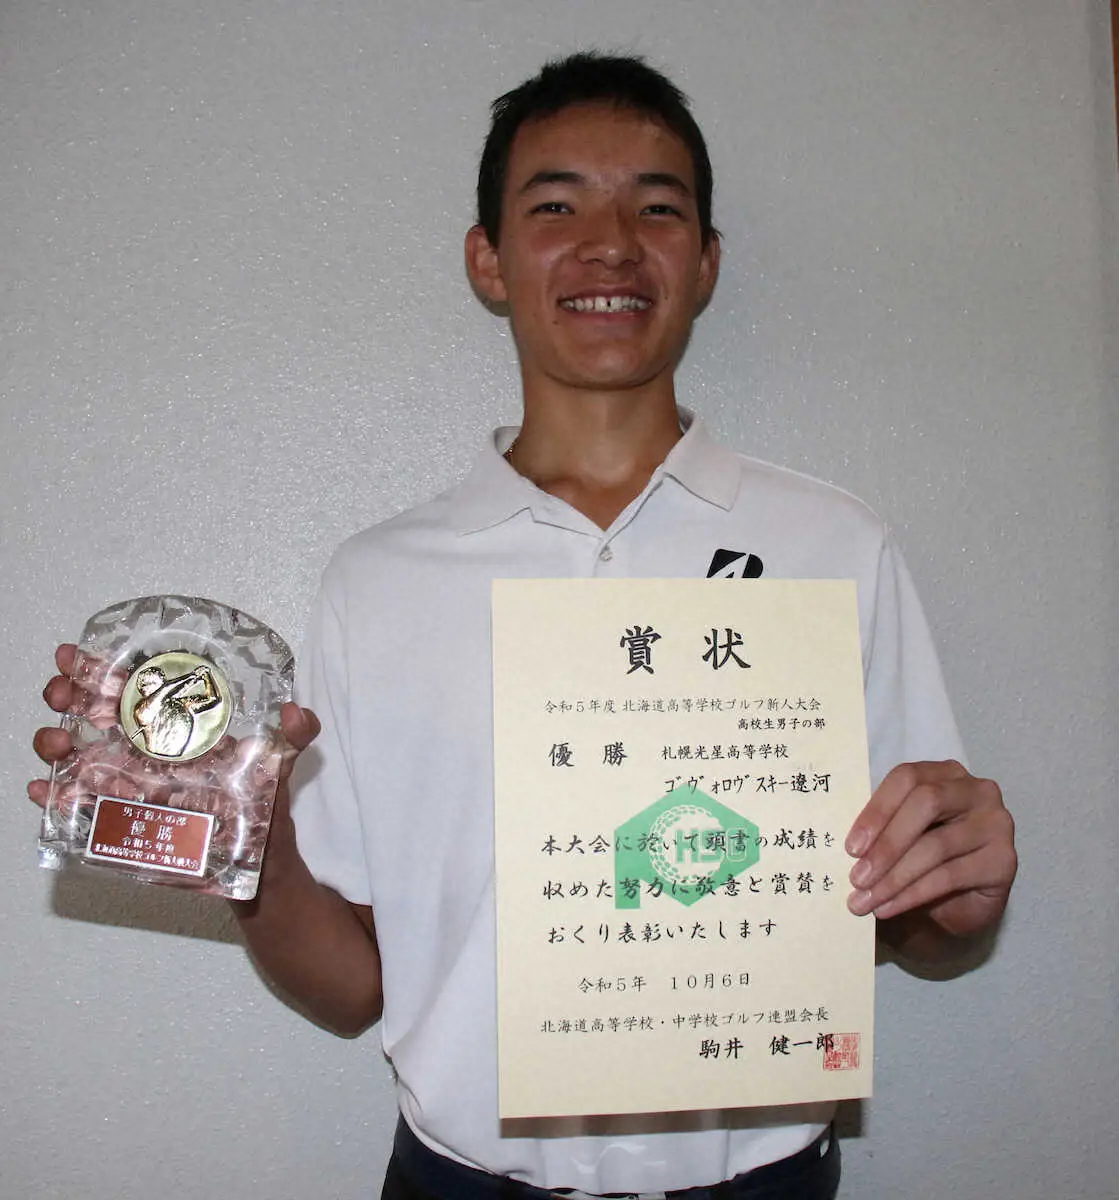 賞状
令和5年度 北海道高等学校ゴルフ新人大会
高校生男子の部
優勝 札幌光星高等学校
ゴヴォロヴスキー遼河
本大会に於いて頭書の成績を
収めた努力に敬意と賞賛を
おくり表彰いたします
令和5年 10月6日
北海道高等学校・中学校ゴルフ連盟会長
駒井 健一郎
HSG
男子個人の部
優勝
令和5年度
北海道高等学校ゴルフ新人戦大会